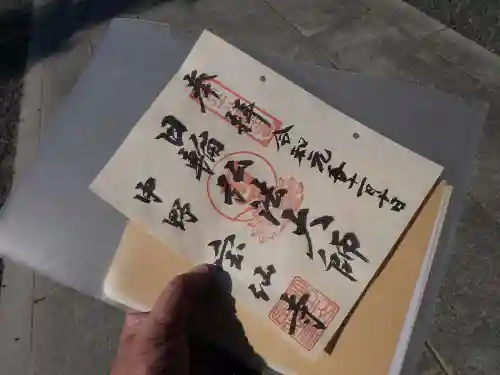 奉拝 令和元年十一月十日
日輪弘法大師
中野 宝仙寺